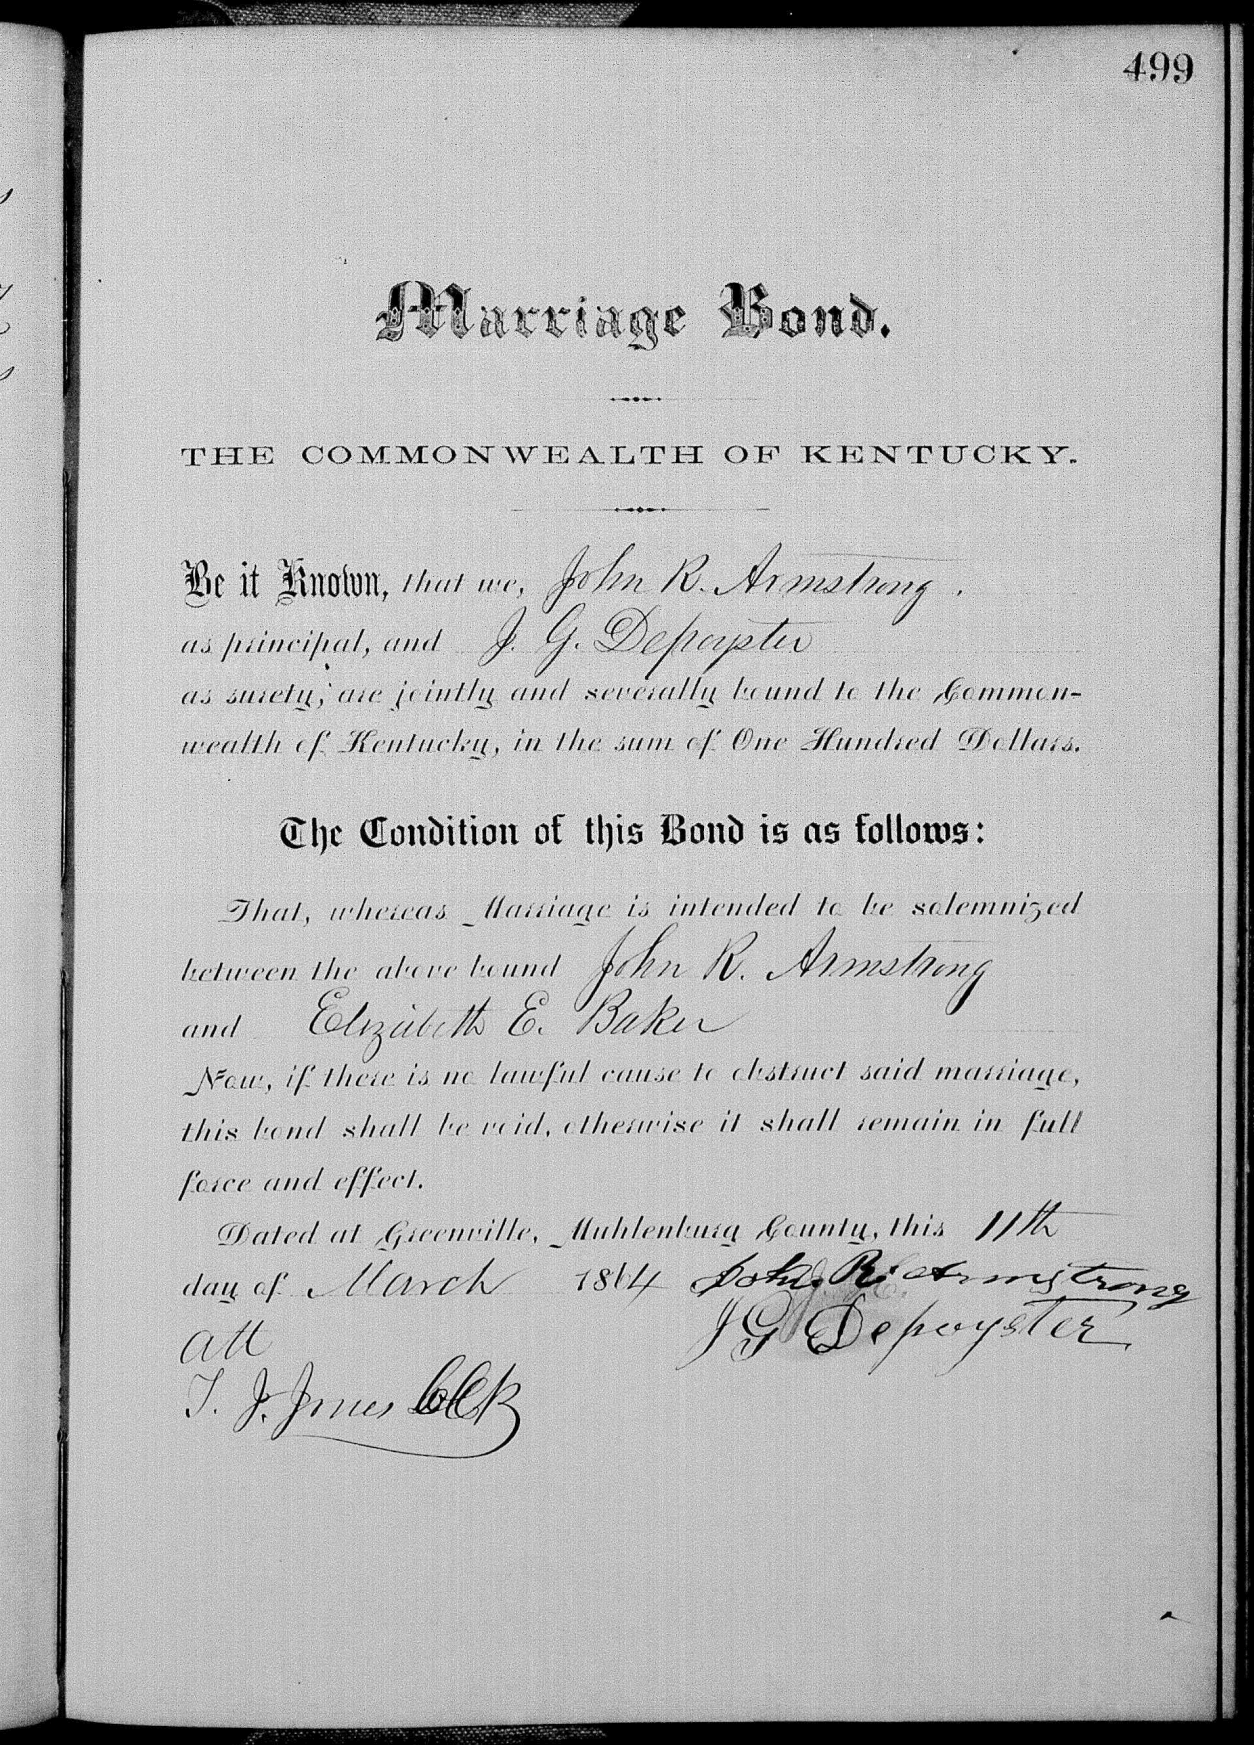 499
Marriage Bond.
THE COMMONWEALTH OF KENTUCKY.
Be it Known, that we, John R. Armstrong.
as principal, and J. G. Depoyster
as surety, are jointly and severally bound to the Common-
wealth of Kentucky, in the sum of One Hundred Dollars.
The Condition of this Bond is as follows:
That, whereas Marriage is intended to be solemnized
between the above bound John R. Armstrong
and Elizabeth E. Baker
Now, if there is no lawful cause to obstruct said marriage,
this bond shall be void, otherwise it shall remain in full
force and effect.
Dated at Greenville, Muhlenburg County, this 11th
day of March 1864 John R. Armstrong
J G Depoyster
Att
T. J. Jones